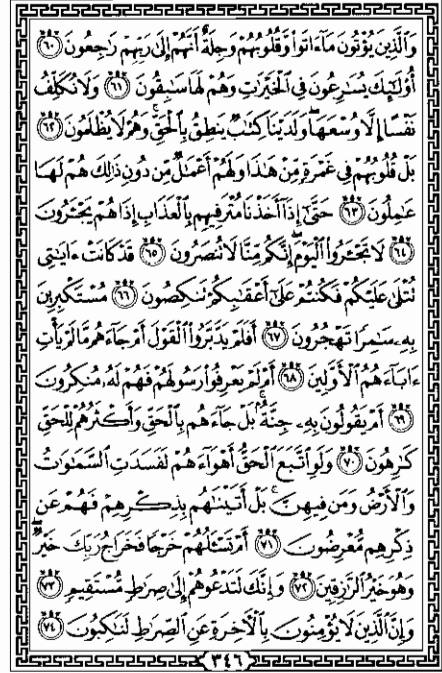 وَٱلَّذِينَ يُؤْتُونَ مَآءَاتَوا۟ وَّقُلُوبُهُمْ وَجِلَةٌ أَنَّهُمْ إِلَىٰ رَبِّهِمْ رَٰجِعُونَ ٦٠
أُو۟لَٰٓئِكَ يُسَٰرِعُونَ فِى ٱلْخَيْرَٰتِ وَهُمْ لَهَا سَٰبِقُونَ ٦١ وَلَا نُكَلِّفُ
نَفْسًا إِلَّا وُسْعَهَا ۖ وَلَدَيْنَا كِتَٰبٌ يَنطِقُ بِٱلْحَقِّ ۚ وَهُمْ لَا يُظْلَمُونَ ٦٢
بَلْ قُلُوبُهُمْ فِى غَمْرَةٍ مِّنْ هَٰذَا وَلَهُمْ أَعْمَٰلٌ مِّن دُونِ ذَٰلِكَ هُمْ لَهَا
عَٰمِلُونَ ٦٣ حَتَّىٰٓ إِذَآ أَخَذْنَا مُتْرَفِيهِم بِٱلْعَذَابِ إِذَا هُمْ يَجْـَٔرُونَ
٦٤ لَا تَجْـَٔرُوا۟ ٱلْيَوْمَ ۖ إِنَّكُم مِّنَّا لَا تُنصَرُونَ ٦٥ قَدْ كَانَتْ ءَايَٰتِى
تُتْلَىٰ عَلَيْكُمْ فَكُنتُمْ عَلَىٰٓ أَعْقَٰبِكُمْ تَنكِصُونَ ٦٦ مُسْتَكْبِرِينَ
بِهِۦ سَٰمِرًا تَهْجُرُونَ ٦٧ أَفَلَمْ يَدَّبَّرُوا۟ ٱلْقَوْلَ أَمْ جَآءَهُم مَّا لَمْ يَأْتِ
ءَابَآءَهُمُ ٱلْأَوَّلِينَ ٦٨ أَمْ لَمْ يَعْرِفُوا۟ رَسُولَهُمْ فَهُمْ لَهُۥ مُنكِرُونَ
٦٩ أَمْ يَقُولُونَ بِهِۦ جِنَّةٌۢ ۚ بَلْ جَآءَهُم بِٱلْحَقِّ وَأَكْثَرُهُمْ لِلْحَقِّ
كَٰرِهُونَ ٧٠ وَلَوِ ٱتَّبَعَ ٱلْحَقُّ أَهْوَآءَهُمْ لَفَسَدَتِ ٱلسَّمَٰوَٰتُ
وَٱلْأَرْضُ وَمَن فِيهِنَّ ۚ بَلْ أَتَيْنَٰهُم بِذِكْرِهِمْ فَهُمْ عَن
ذِكْرِهِم مُّعْرِضُونَ ٧١ أَمْ تَسْـَٔلُهُمْ خَرْجًا فَخَرَاجُ رَبِّكَ خَيْرٌ ۖ
وَهُوَ خَيْرُ ٱلرَّٰزِقِينَ ٧٢ وَإِنَّكَ لَتَدْعُوهُمْ إِلَىٰ صِرَٰطٍ مُّسْتَقِيمٍ ٧٣
وَإِنَّ ٱلَّذِينَ لَا يُؤْمِنُونَ بِٱلْءَاخِرَةِ عَنِ ٱلصِّرَٰطِ لَنَٰكِبُونَ ٧٤
٣٤٦